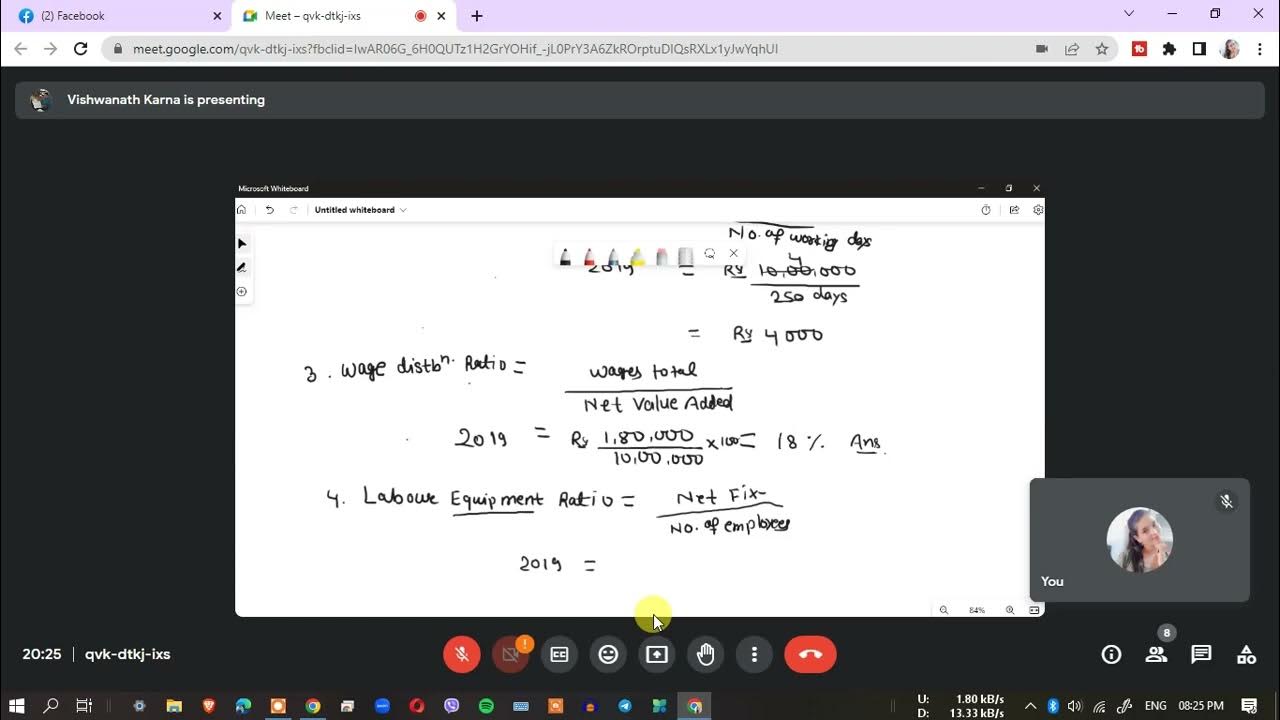 (2) Facebook
Meet – qvk-dtkj-ixs
meet.google.com/qvk-dtkj-ixs?fbclid=IwAR06G_6H0QUTz1H2GrYOHif_-jL0PrY3A6ZkROrptuDIQsRXLx1yJwYqhUI
Vishwanath Karna is presenting
Microsoft Whiteboard
Untitled whiteboard
No. of working days
2019 = Rs 10,00,000
4
250 days
= Rs 4000
3. Wage distbn. Ratio = Wages total
Net Value Added
2019 = Rs 1,80,000 × 100 = 18 % Ans.
10,00,000
4. Labour Equipment Ratio = Net Fix
No. of employees
2019 =
You
84%
8
20:25 | qvk-dtkj-ixs
U: 1.80 kB/s
D: 13.33 kB/s
ENG 08:25 PM